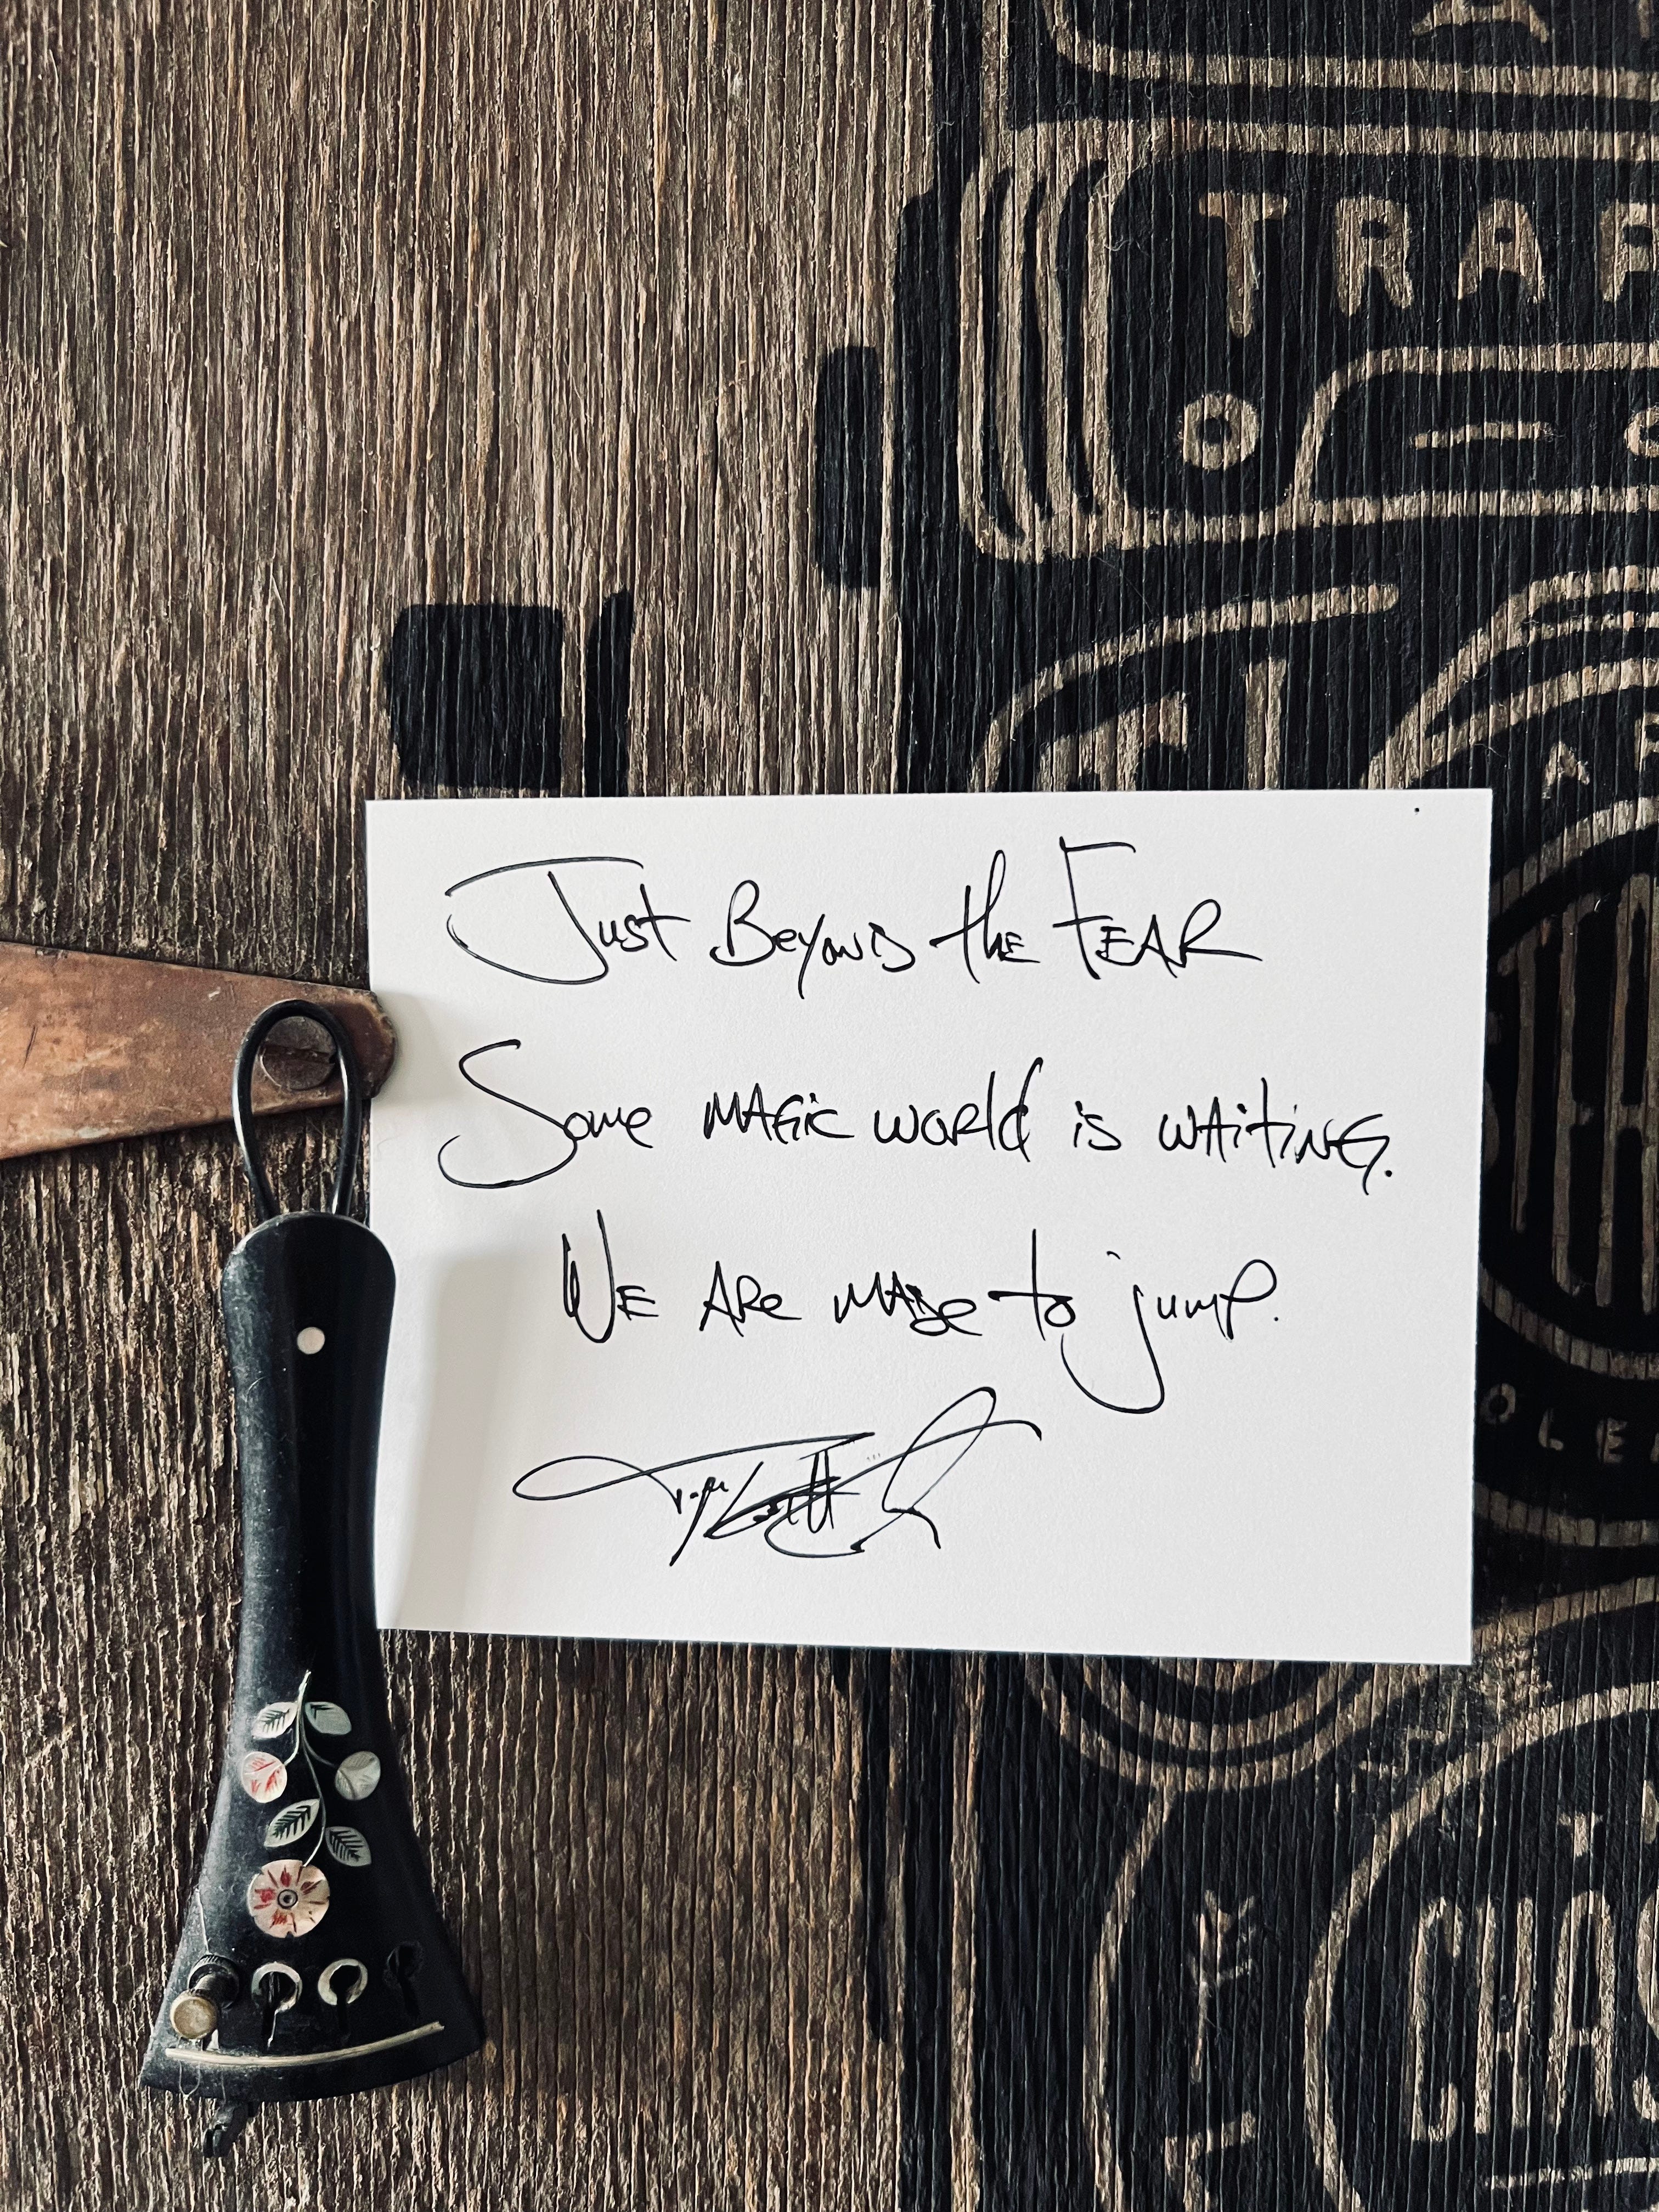 TRAF
Just Beyond the FEAR
Some MAGic world is waiting.
We ARe MADe to jump.
OLE
CHAS